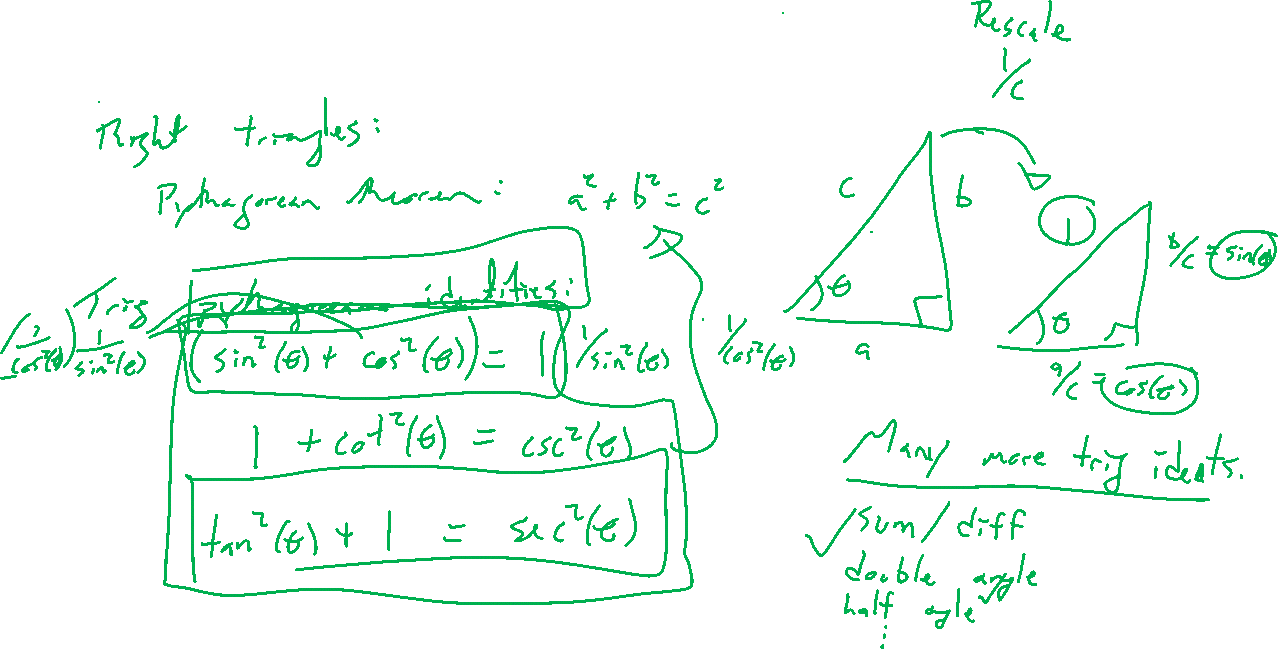 Right triangles:
Pythagorean theorem: a² + b² = c²
Trig identities:
(1/sin²(θ)) (sin²(θ) + cos²(θ)) = 1 1/sin²(θ) 1/cos²(θ)
1 + cot²(θ) = csc²(θ)
tan²(θ) + 1 = sec²(θ)
Rescale
1/c
c
b
θ
a
1
b/c = sin(θ)
θ
a/c = cos(θ)
Many more trig idents.
✓ sum/diff
double angle
half angle ✓
⋮